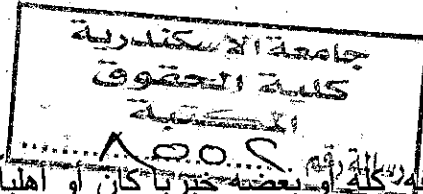 جامعة الاسكندرية
كلية الحقوق
المكتبة
رسالة رقم ٨٥٥٢
كله أو بعضه خيريا كان أو أهليا